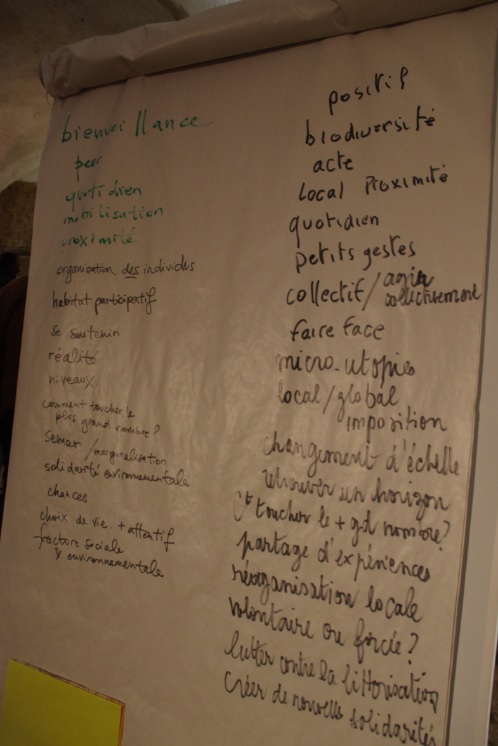 bienveillance
peer
quotidien
mobilisation
proximité
organisation des individus
habitat participatif
se soutenir
réalité
niveaux
comment toucher le
plus grand nombre ?
semer / marginalisation
solidarité environnementale
chances
choix de vie + attentif
fracture sociale
& environnementale
positif
biodiversité
acte
local proximité
quotidien
petits gestes
collectif / agir
collectivement
faire face
micro-utopies
local / global
imposition
changement d'échelle
retrouver un horizon
toucher le + gd nombre ?
partage d'expériences
réorganisation locale
volontaire ou forcée ?
lutter contre la littorisation
créer de nouvelles solidarités